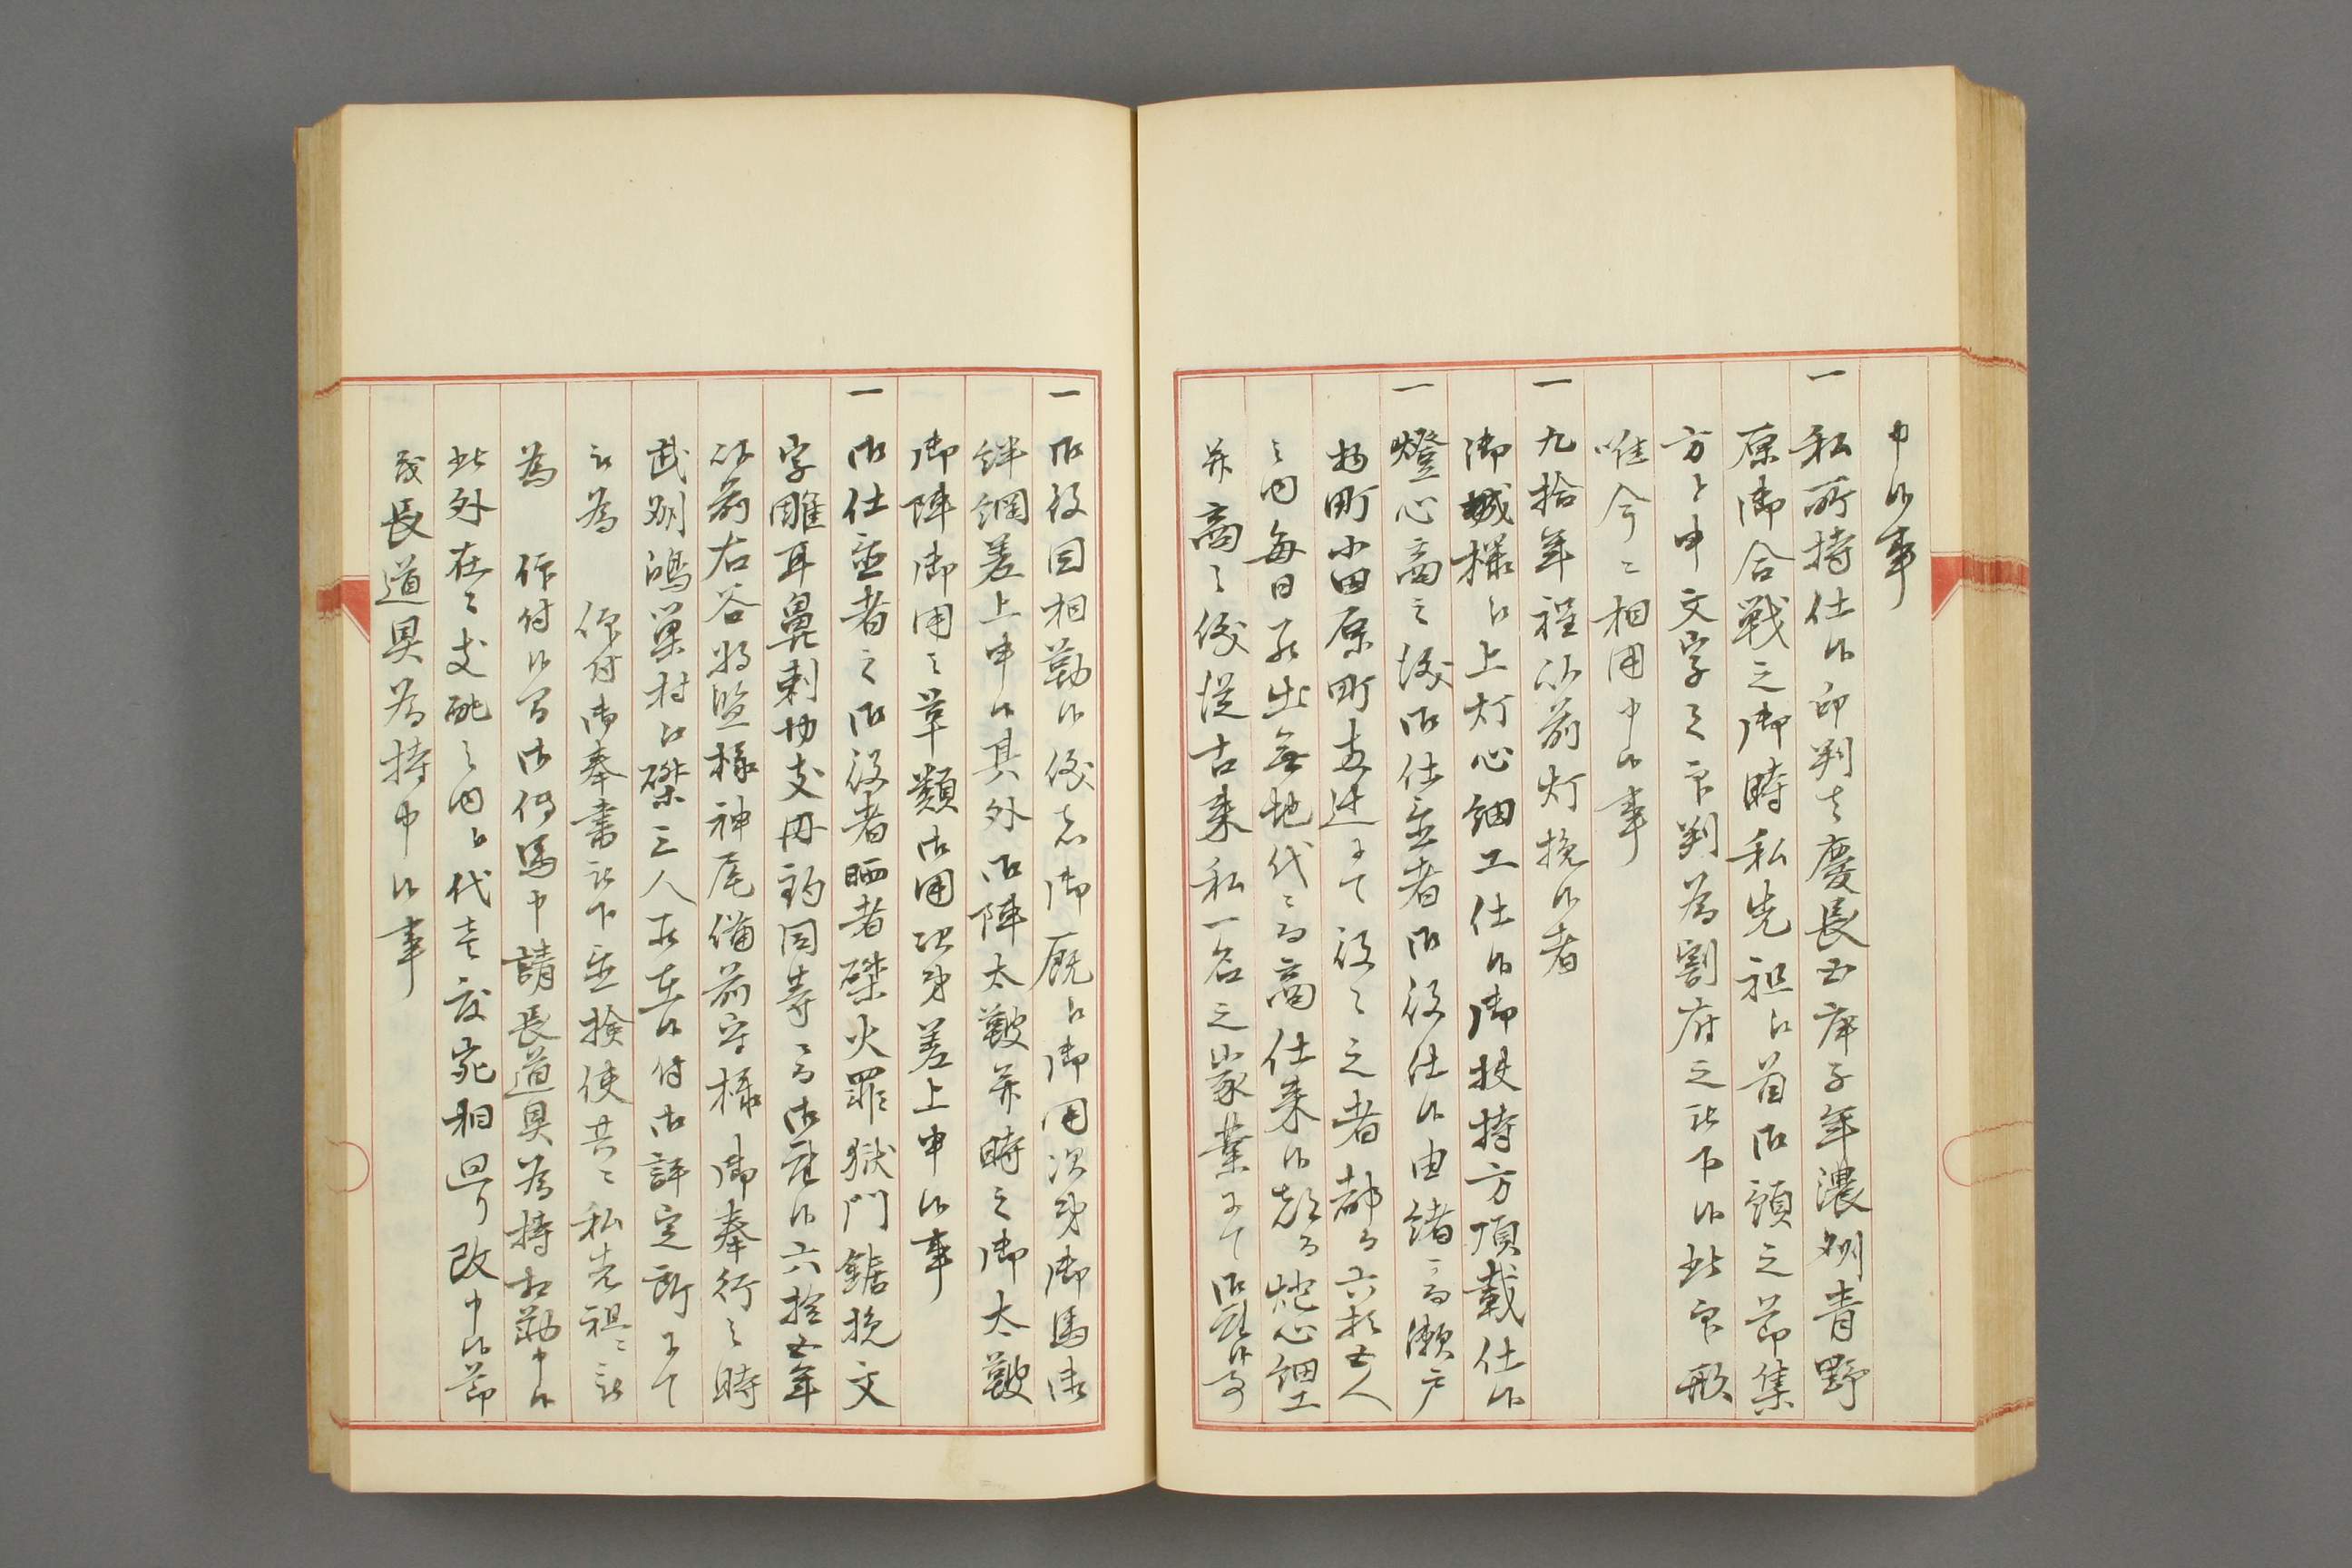 申候事
一 私所持仕候印判者慶長五庚子年濃州青野
原御合戦之御時私先祖江首御頭之節集
方と申文字之印判為割府之被下候此印形
唯今ニ相用申候事
一 九拾年程以前灯挽候者
御城様江上灯心細工仕候御扶持方頂戴仕候
一 燈心商之儀御仕置者御役仕候由緒ニ而瀬戸
物町小田原町辻ニて役之者都而六拾五人
之内毎日罷出無地代ニ而商仕来候 燈心細工
并商之儀従古来私一名之家業ニて御座候事
一 御役目相勤候儀者御厩江御用次第御馬
絆綱差上申候其外御陣太皷并時之御太皷
御陣御用之革類御用次第差上申候事
一 御仕置者之御役者晒者磔火罪獄門鋸挽文
字雕耳鼻剃切支丹釣同等ニ而御座候六拾五年
以前右谷将監様神尾備前守様御奉行之時
武州鴻巣村江磔三人有之候付御評定所ニて
被為 仰付御奉書被下置検使共ニ私先祖ニ被
為 仰付候而御伝馬申請長道具為持相勤申候
此外在々支配之内江代官衆相廻り改申候節
茂長道具為持申候事